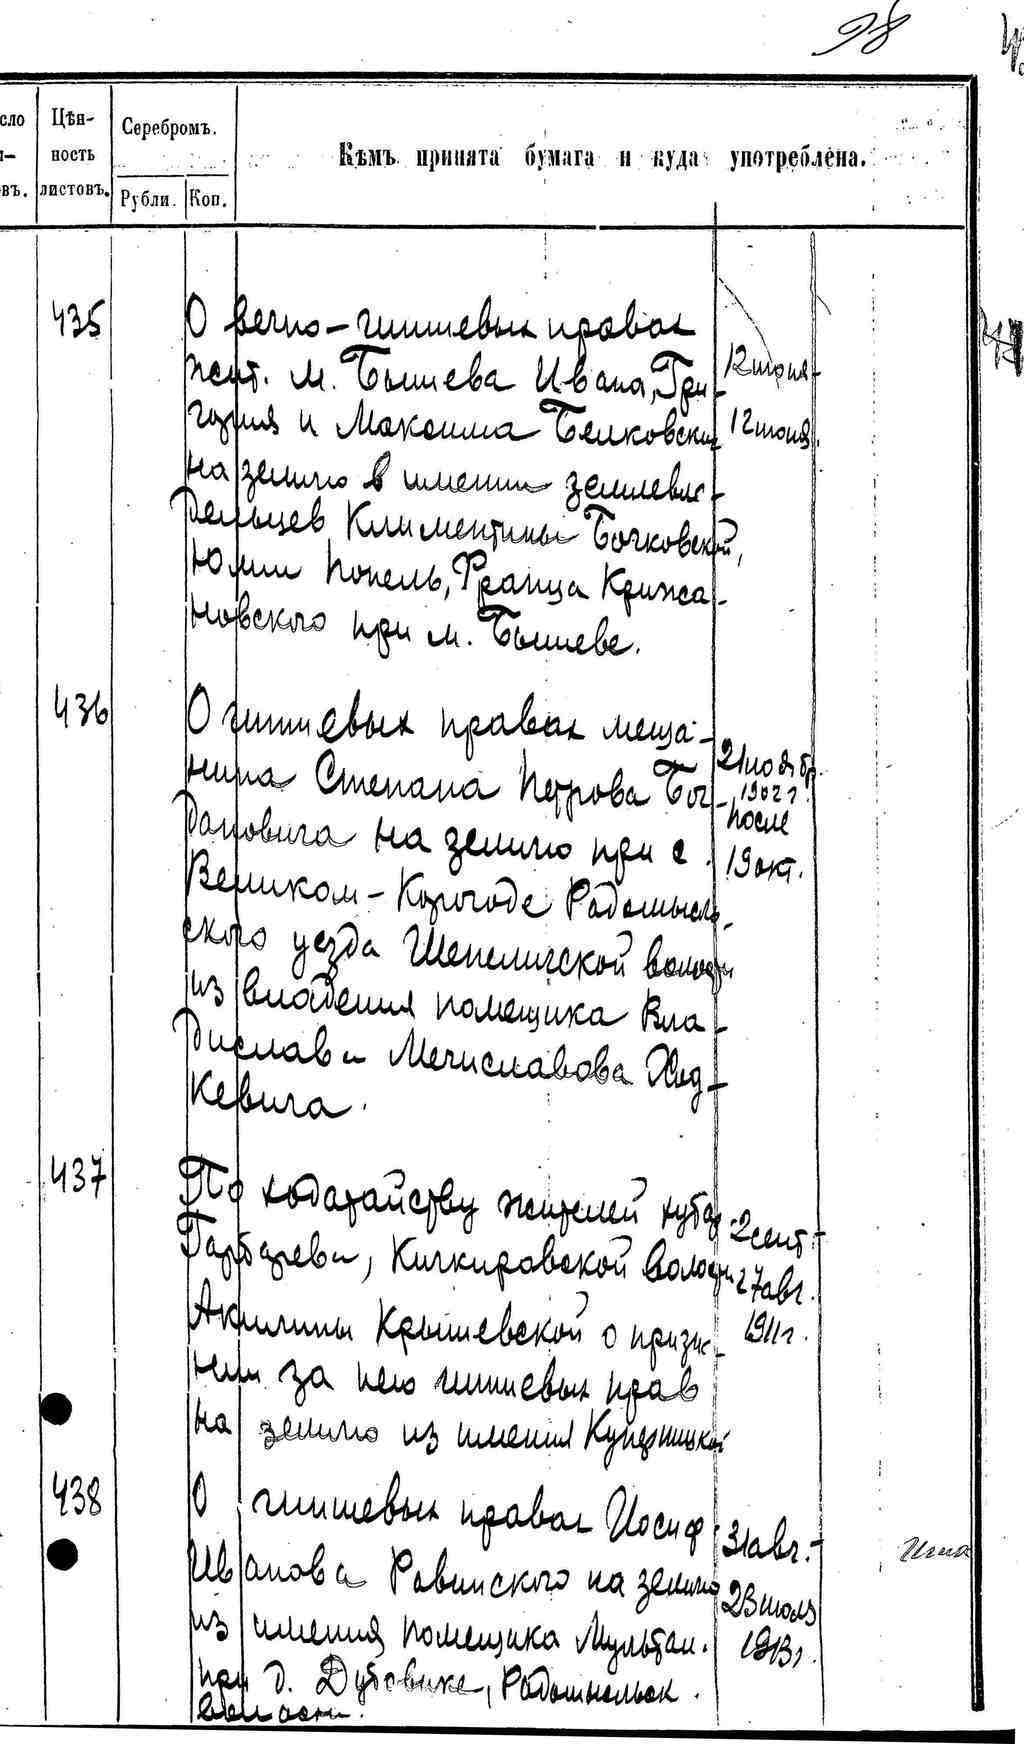 98
сло
Цѣн-
ность
листовъ.
въ.
Серебромъ.
Рубли.
Коп.
Кѣмъ принята бумага и куда употреблена.
435
О вечно-чиншевых правах
жит. м. Бышева Ивана, Гри-
гория и Максима Белковских
на землю в имении землевла-
дельцев Климентины Бочковской,
Юлии Попель, Франца Крижа-
новского при м. Бышеве.
12 июня -
12 июня.
436
О чиншевых правах меща-
нина Степана Петрова Бог-
дановича на землю при с.
Великом-Корогоде Радомысль-
ского уезда Шепеличской волости
из владения помещика Вла-
дислава Мечиславова Ход-
кевича.
21 ноябр.
1902 г.
после
19 окт.
437
По ходатайству жителей хутор
Гарбарева, Кичкировской волости
Акилины Крышевской о призна-
нии за нею чиншевых прав
на землю из имения Куперницкой
2 сент. -
27 авг.
1911 г.
438
О чиншевых правах Иосиф
Иванова Равинского на землю
из имения помещика Мультан.
при д. Дубовике, Радомысльск.
волости.
31 авг. -
23 июля
1913 г.